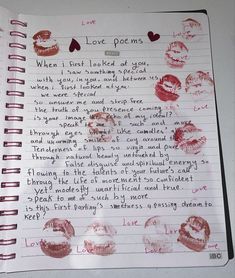 Love
Love poems
Love
When i first looked at you,
i saw something special
with you, in you, and between us
when i first looked at you
we were special
so answer me and strip free
the truth of your presence coming
is your image echo of my ideal?
speak to me such and more
through eyes bright like candles
and unarming smiles of coy around
Tenderness of lips so virgin and pure
through natural beauty untouched by
False disguise and spiritual energy so
flowing to the talents of your future's call
through the life of movement so confident
yet modestly unartificial and true
speak to me of such by more
is this first parting's sweetness a passing dream to
keep?
Love
Love
Love
Love
Love
Love
Love